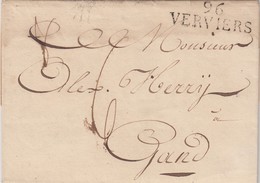 96
VERVIERS
Monsieur
Alex. Herrÿ
à
Gand